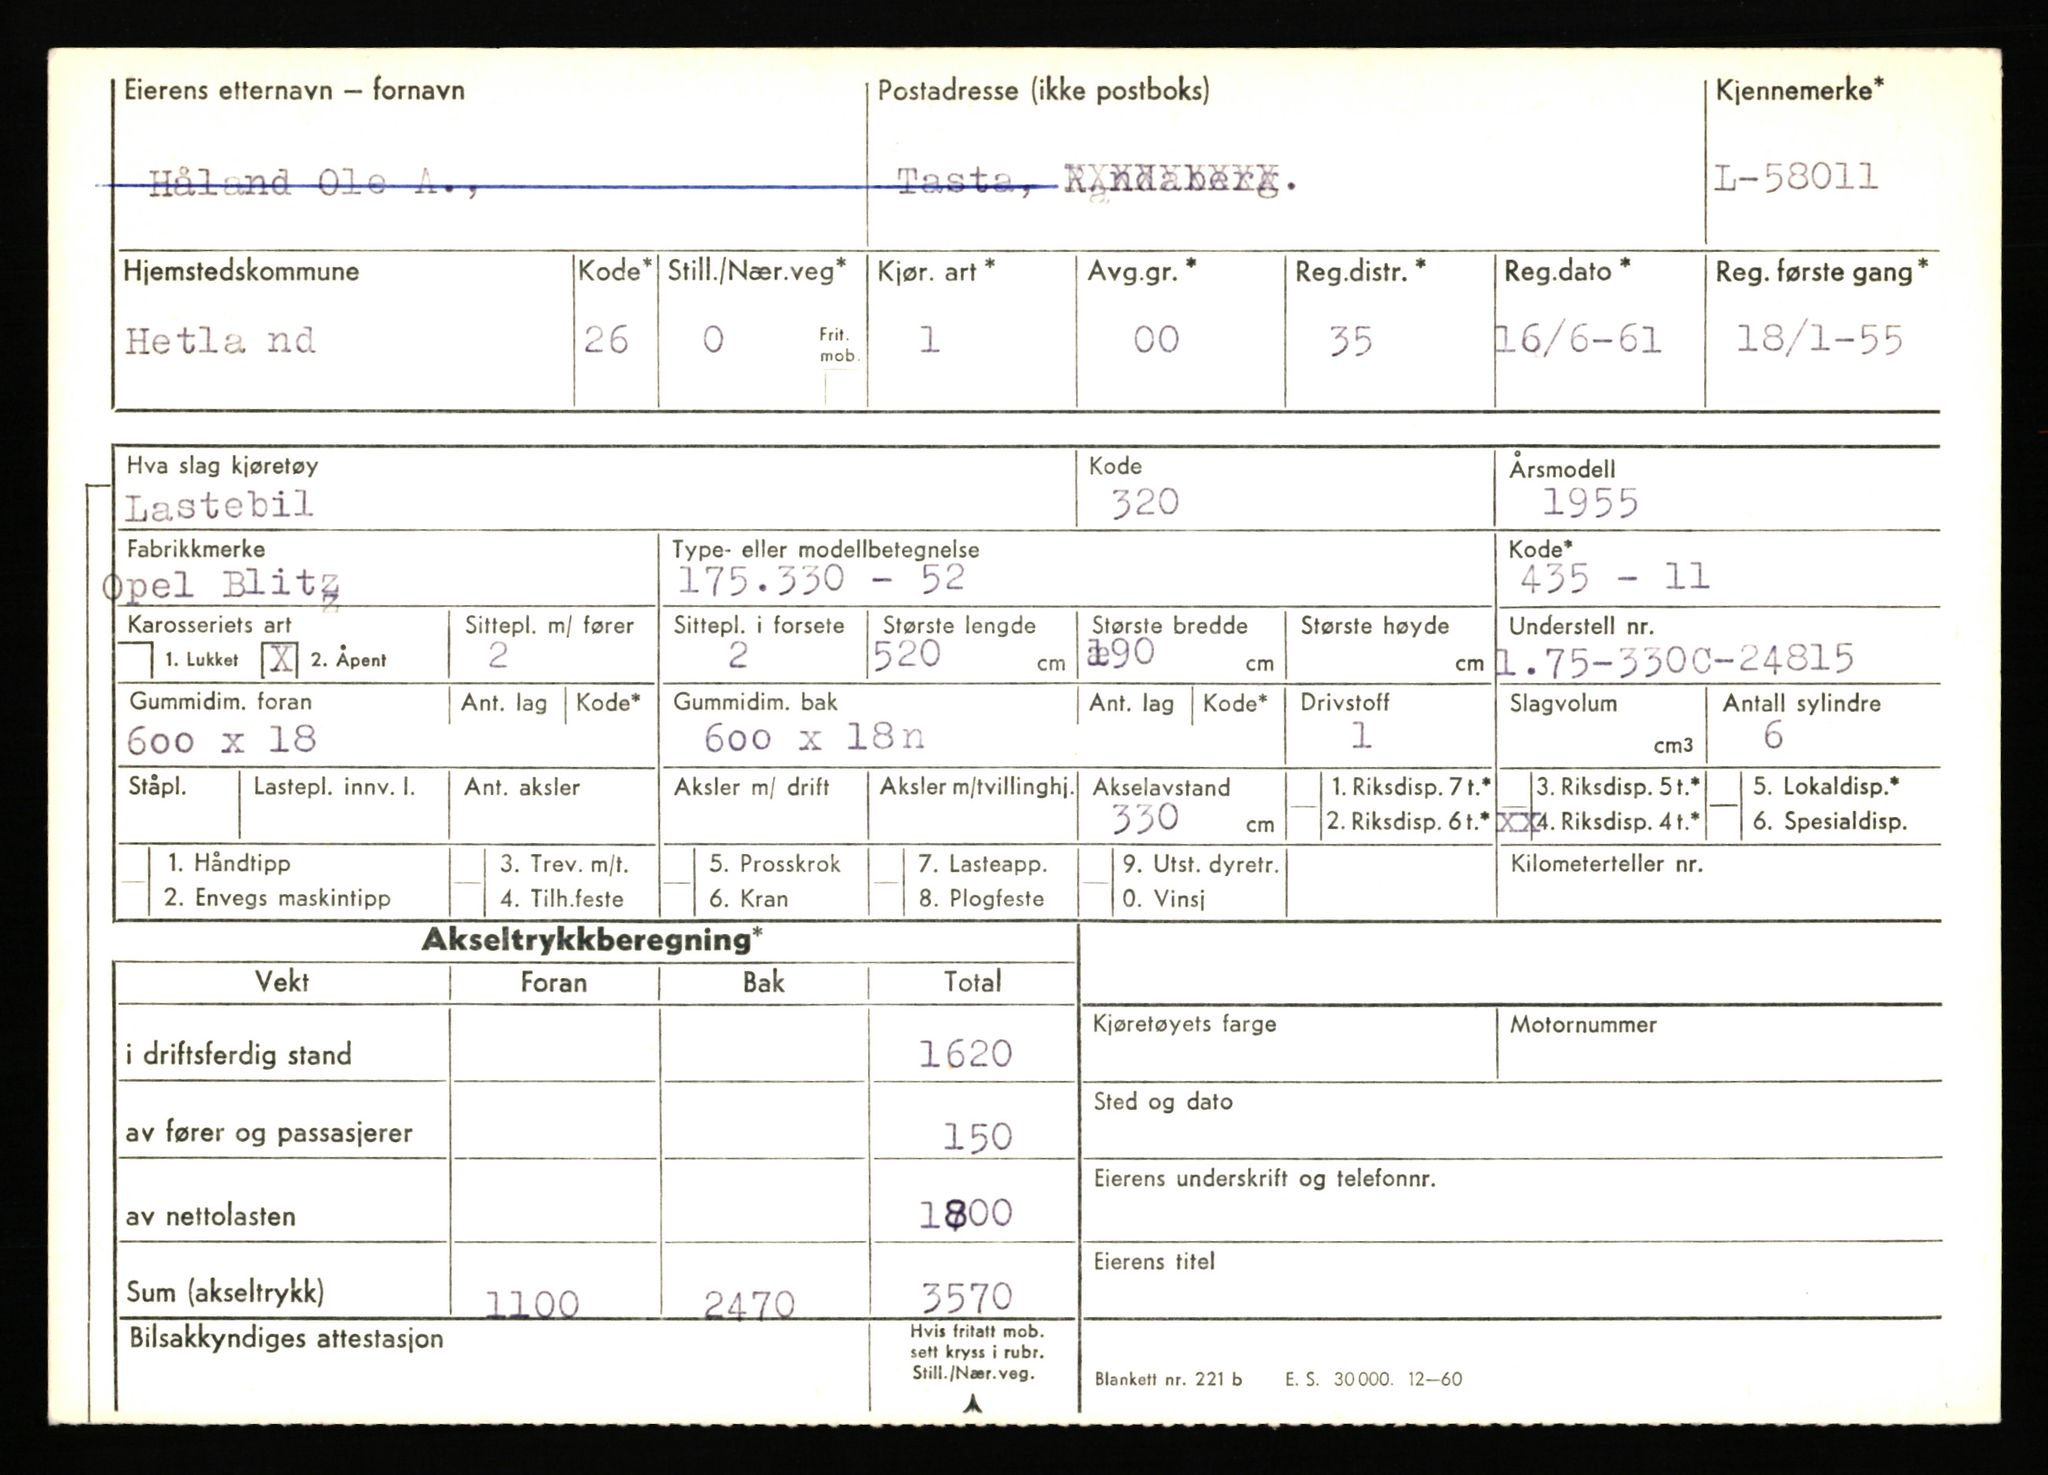 Eierens etternavn – fornavn Postadresse (ikke postboks) Kjennemerke*
Håland Ole A., Tasta, Randaberg. L-58011
Hjemstedskommune Kode* Still./Nær.veg* Kjør. art* Avg.gr.* Reg.distr.* Reg.dato* Reg. første gang*
Hetla nd 26 0 Frit. mob. 1 00 35 16/6-61 18/1-55
Hva slag kjøretøy Kode Årsmodell
Lastebil 320 1955
Fabrikkmerke Type- eller modellbetegnelse Kode*
Opel Blitz 175.330 - 52 435 - 11
Karosseriets art Sittepl. m/ fører Sittepl. i forsete Største lengde Største bredde Største høyde Understell nr.
1. Lukket X 2. Åpent 2 2 520 cm 190 cm cm 1.75-330C-24815
Gummidim. foran Ant. lag Kode* Gummidim. bak Ant. lag Kode* Drivstoff Slagvolum Antall sylindre
600 x 18 600 x 18n 1 cm3 6
Ståpl. Lastepl. innv. l. Ant. aksler Aksler m/ drift Aksler m/tvillinghj. Akselavstand 1. Riksdisp. 7 t.* 3. Riksdisp. 5 t.* 5. Lokaldisp.*
330 cm 2. Riksdisp. 6 t.* XX 4. Riksdisp. 4 t.* 6. Spesialdisp.
1. Håndtipp 3. Trev. m/t. 5. Prosskrok 7. Lasteapp. 9. Utst. dyretr. Kilometerteller nr.
2. Envegs maskintipp 4. Tilh.feste 6. Kran 8. Plogfeste 0. Vinsj
Akseltrykkberegning*
Vekt Foran Bak Total
Kjøretøyets farge Motornummer
i driftsferdig stand 1620
Sted og dato
av fører og passasjerer 150
Eierens underskrift og telefonnr.
av nettolasten 1800
Eierens titel
Sum (akseltrykk) 1100 2470 3570
Bilsakkyndiges attestasjon Hvis fritatt mob.
sett kryss i rubr.
Still./Nær.veg.
Blankett nr. 221 b E. S. 30 000. 12–60